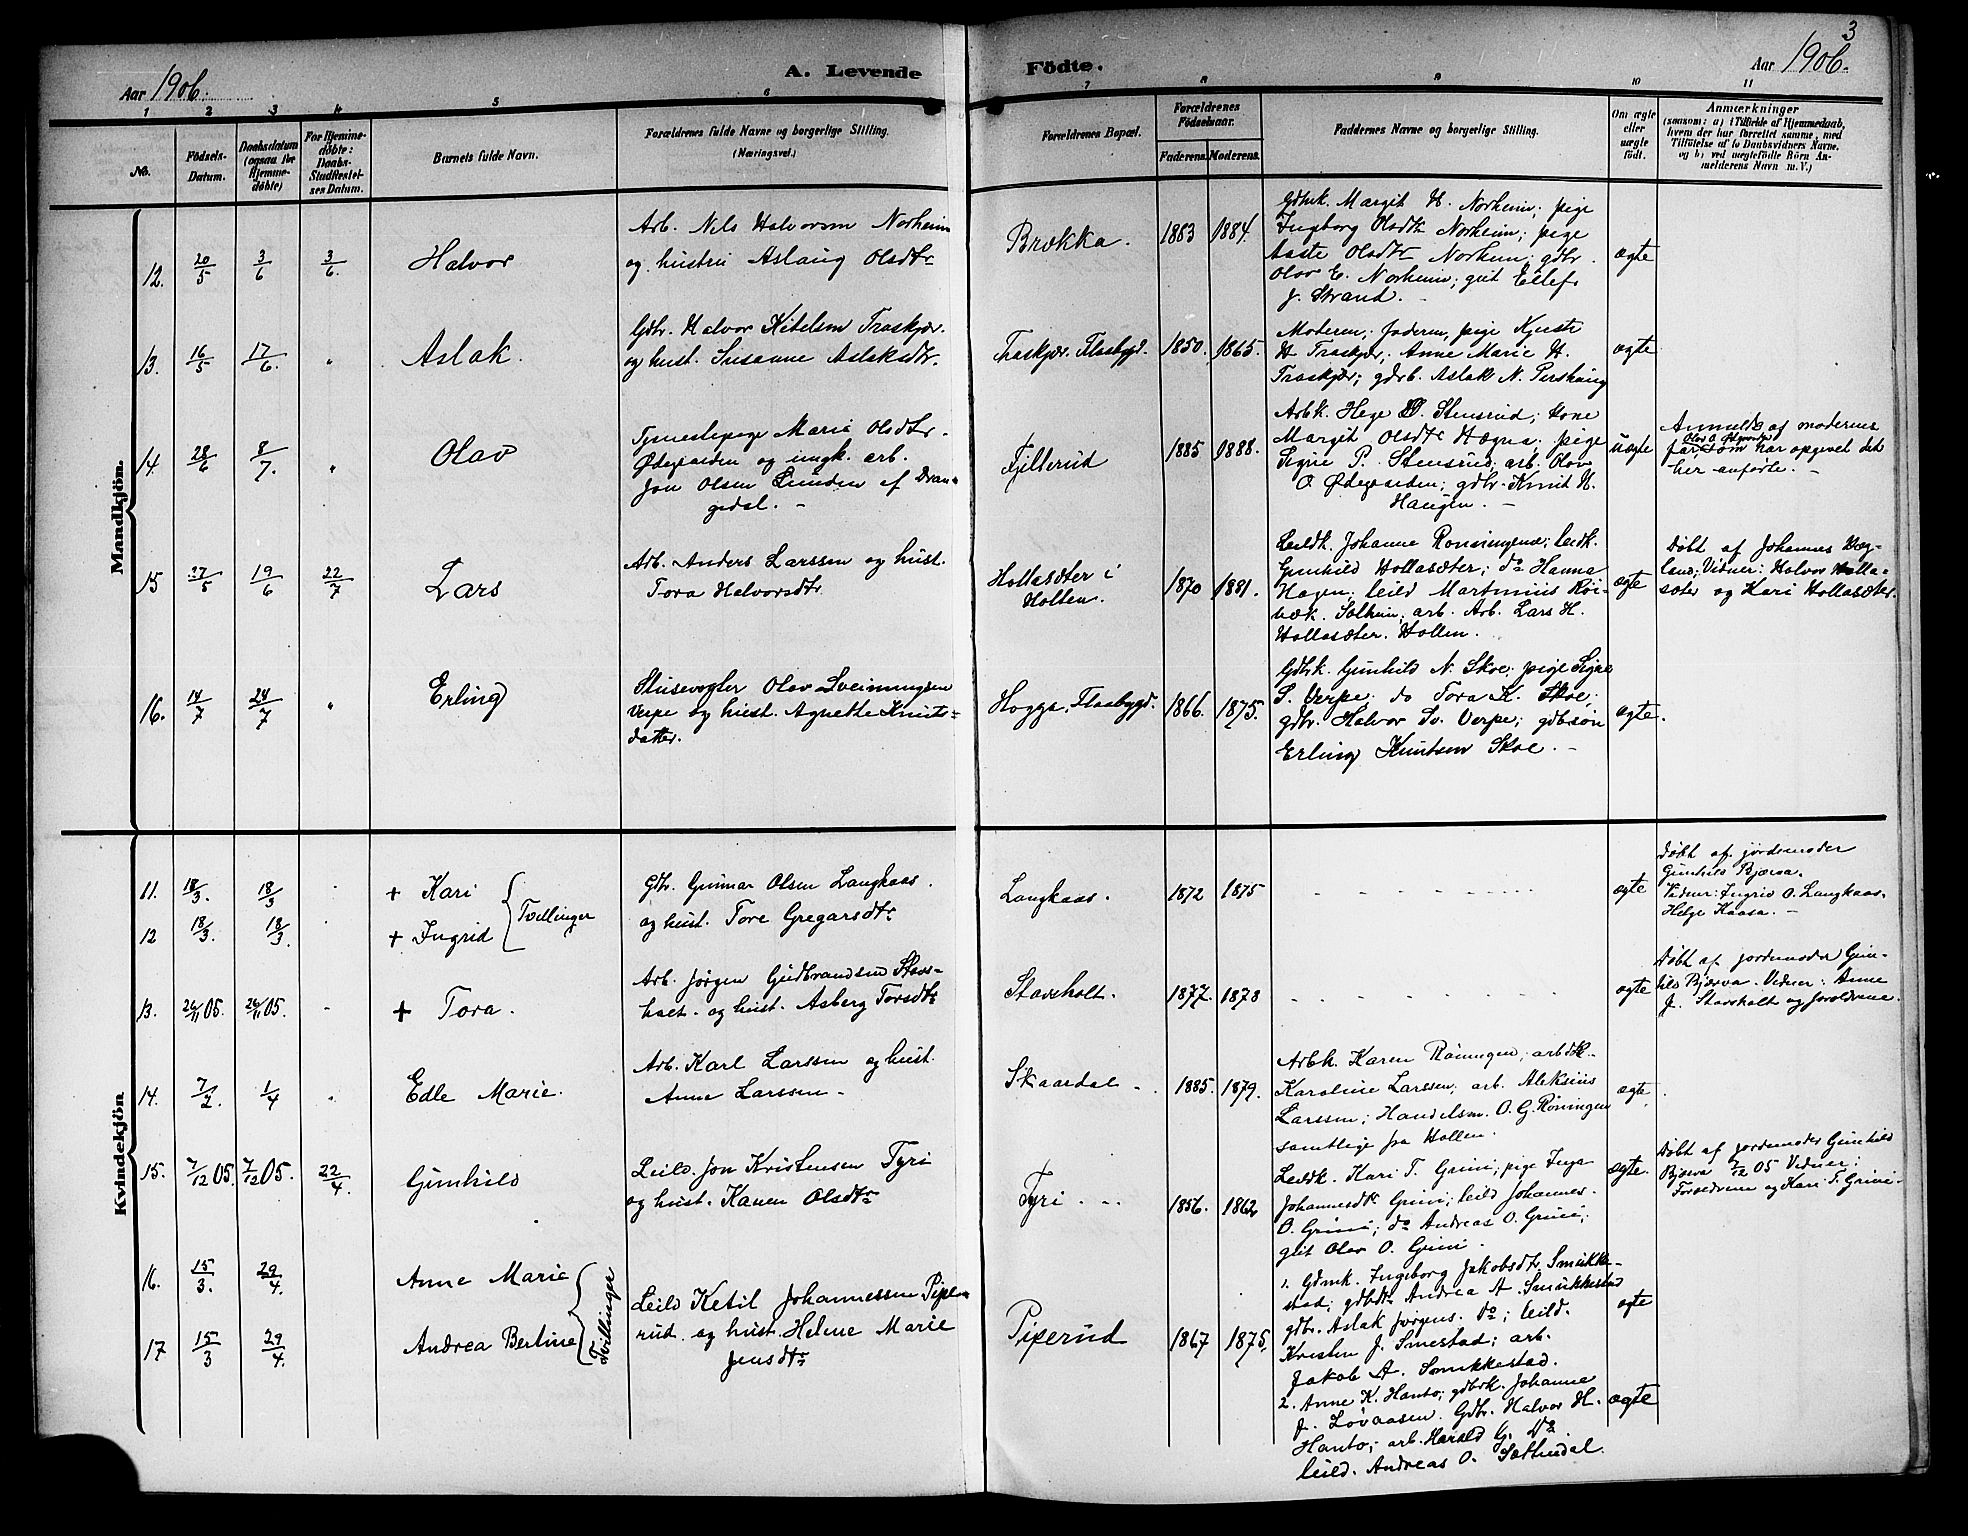 3
Aar 1906.
A. Levende Födte.
Aar 1906.
1 2 3 4 5 6 7 8 9 10 11
No.
Födsels-
Datum.
Daabsdatum
(ogsaa for
Hjemme-
döbte)
For Hjemme-
döbte:
Daabs-
Stadfæstel-
ses Datum.
Barnets fulde Navn.
Forældrenes fulde Navne og borgerlige Stilling.
(Næringsvei.)
Forældrenes Bopæl.
Forældrenes
Födselsaar.
Faderens. Moderens.
Faddernes Navne og borgerlige Stilling.
Om ægte
eller
uægte
født.
Anmærkninger
(saasom: a) i Tilfælde af Hjemmedaab,
hvem der har forrettet samme, med
Tilföielse af to Daabsvidners Navne,
og b) ved uægtefödte Börn An-
melderens Navn m. V.)
Mandkjön.
12. 20/5 3/6 3/6. Halvor
Arb. Nils Halvorsen Norheim
og hustru Aslaug Olsdtr
Brokka. 1883 1884.
Gdbrk. Margit H. Norheim; pige
Ingborg Olsdtr Norheim; pige
Aaste Olsdtr Norheim; gdbr.
Olav E. Norheim; gut Ellef
J. Strand.
ægte
13. 16/5 17/6. " Aslak.
Gdbr. Halvor Ketelsen Traskjær.
og hust. Susanne Aslaksdtr.
Traskjær. Flaabygd. 1850. 1865.
Moderen; faderen, pige Kjersti
H Traskjær; Anne Marie H.
Traskjær; gdrb. Aslak N.
ægte
14 28/6 8/7. " Olav
Tjenestepige Marie Olsdtr.
Ødegaarden og ungk. arb.
Jon Olsen Lunden af Dran-
gedal. -
Fjellerud 1885 1888.
Arbk. Hege O. Stensrud; kone
Margit Olsdtr Hægna; pige
Signe P. Stensrud; arb. Olav
O. Ødegaarden; gdbr. Knud H.
Haugen. -
uægte
Anmeldt af moderens
Olav O. Ødegaarden
far, som har opgivet det
her anførte. -
15 27/5 19/6 22/7 Lars
Arb. Anders Larssen og hust.
Tora Halvorsdtr.
Hollasæter i
Holten. 1870 1881.
Leildk. Johanne Ronningene; leidk.
Gunhild Hollasæter; do Hanna
Hagen; leild Martinius Røi-
bæk. Solheim; arb. Arb. Lars H.
Hollasæter. Hollen.
ægte
Døbt af Johannes Hæg-
land; Vidner: Halvor Holla-
sæter og Kari Hollasæter.
16. 14/7 24/7 " Erling
Slusevogter Olav Sveinungsen
Verpe og hust. Agnethe Knuts-
datter.
Hogga, Flaabygd. 1866. 1875.
Gdbrk. Gunhild N. Skoe; pige Signe
S. Verpe; do Tora K. Skoe;
gdbr. Halvor Sv. Verpe; gdbsøn
Erling Knutsen Skoe. -
ægte.
Kvindekjön
11. 18/3. 18/3 + Kari
12 18/3. 18/3. + Ingrid
Tvillinger
Gdbr. Gunnar Olsen Langkaas.
og hust. Tore Gregarsdtr
Langkaas. 1872 1875
ægte
Døbt af jordemoder
Gunhild Bjorva.
Vidner: Ingrid O. Langkaas.
Helge Kaasa. -
13. 26/11 05. 26/11 05. + Tora.
Arb. Jørgen Gudbrandsen Stavs-
holt. og hust. Asberg Torsdtr
Stavsholt. 1877. 1878
ægte
Døbt af jordemoder Gun-
hild Bjorva. Vidner: Anne
J. Stavsholt og forældrene.
14. 7/2 1/4 " Edle Marie.
Arb. Karl Larssen og hust.
Anne Larssen -
Skaardal - 1885. 1879.
Arbk. Karen Røningen; arbdk.
Karoline Larssen; arb. Aleksius
Larssen; Handelsm. O. G. Røningen
samtlige fra Hollen.
ægte.
15. 7/12 05. 7/12 05. 22/4. Gunhild
Leild. Jon Kristensen Tyri
og hust. Karen Olsdtr
Tyri. 1856. 1862
Leildk. Kari T. Grini; pige Inga
Johannesdtr Grini; leild Johannes.
O. Grini; do Andreas O. Grini;
gut Olav O. Grini.
ægte.
Døbt af jordemoder Gunhild
Bjorva 7/12 05 Vidner:
Forældrene og Kari T. Grini.
16. 15/3. 29/4. Anne Marie
17 15/3 29/4. Andrea Bertine
Tvillinger
Leild Ketil Johannessen Piper-
rud. og hust. Helene Marie
Jensdtr
Piperud 1867 1875.
1. Gdmk. Ingeborg Jakobsdtr. Smukke-
stad; gdbdtr Andrea A. Smukkestad
gdbr. Aslak Jørgens. do; leild.
Kristen J. Smestad; arb.
Jakob A. Smukkestad.
2. Anne K. Hanto; gdbrk. Johanne
J. Løvaasen. Gdbr. Halvor H.
Hanto; arb. Harald G. do.
leild. Andreas O. Sættendal.
ægte
ægte